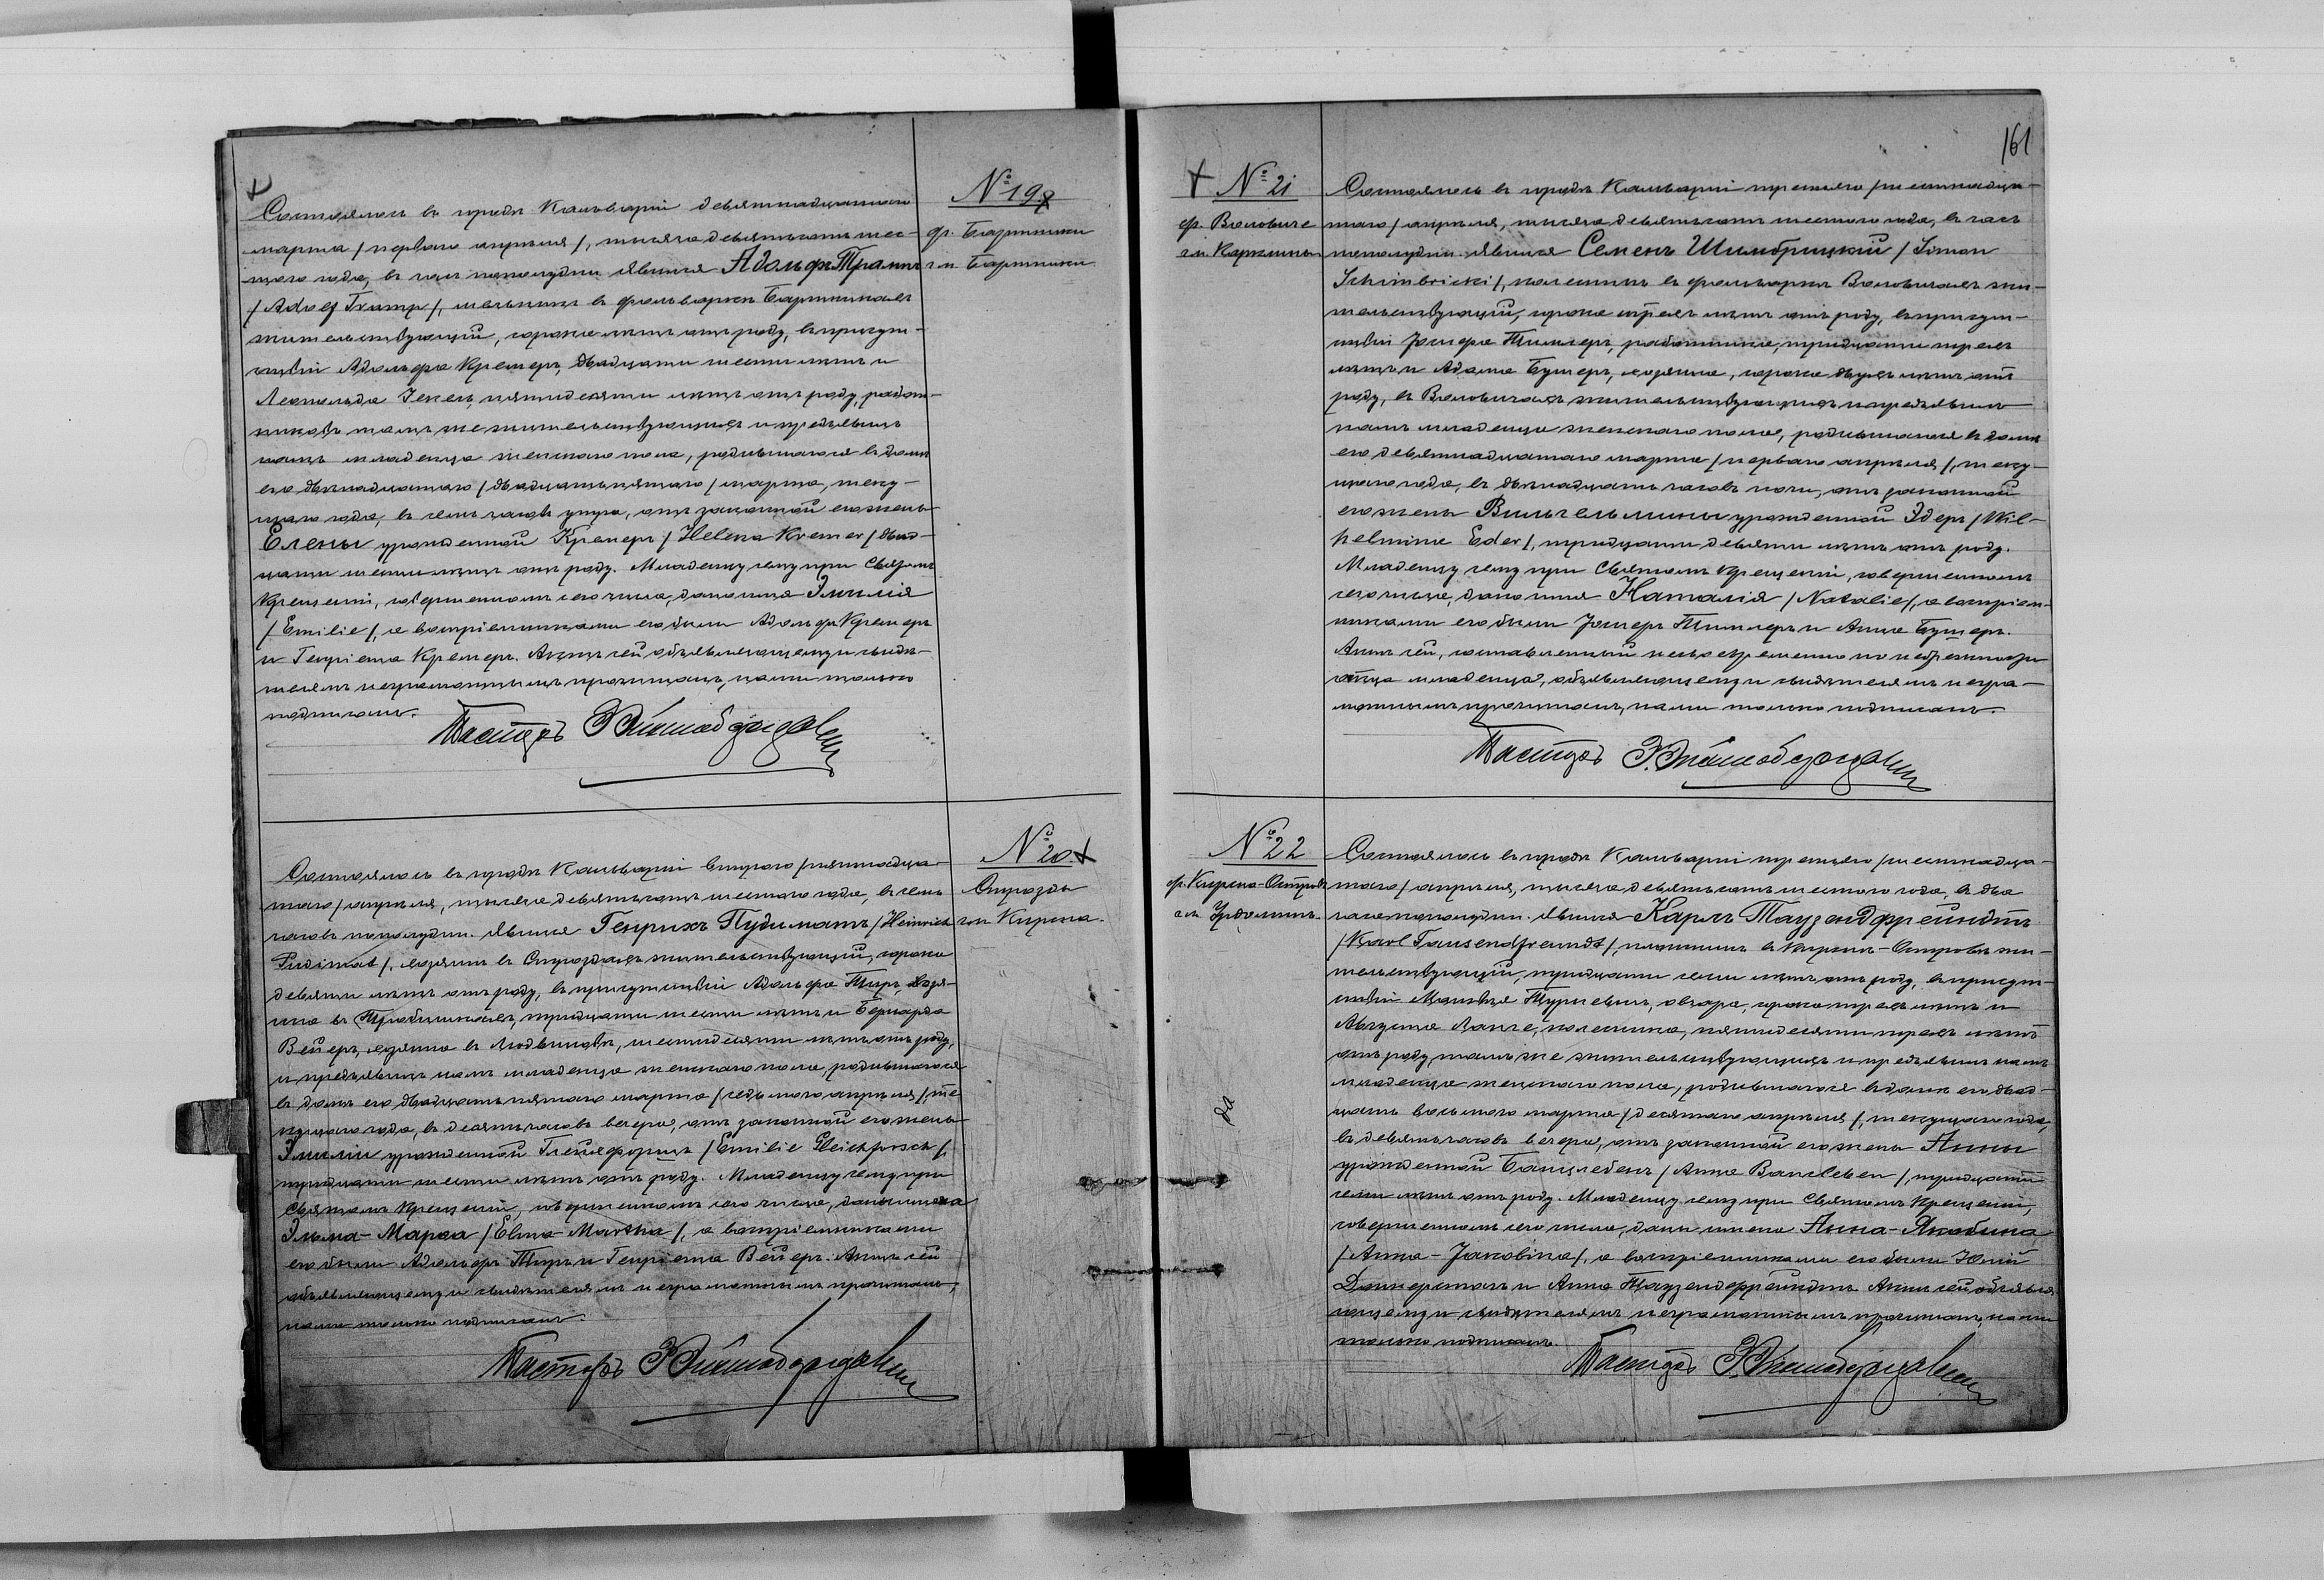 № 19.
ф. Бартники
гм. Бартники
Состоялось въ городѣ Кальваріи девятнадцатаго
марта /перваго апрѣля/, тысяча девятьсотъ шес-
таго года, въ часъ пополудни. Явился Адольфъ Трампъ
/Adolf Tramp/, мельникъ въ фольваркѣ Бартникахъ
жительствующій, сорока лѣтъ отъ роду, въ присут-
ствіи Адольфа Кремеръ, двадцати шести лѣтъ и
Леопольда пятидесяти лѣтъ отъ роду, работ-
никовъ тамъ же жительствующихъ и предъявилъ
намъ младенца женскаго пола, родившагося въ домѣ
его двѣнадцатаго /двадцатьпятаго/ марта, теку-
щаго года, въ семь часовъ утра, отъ законной его жены
Елены урожденной Кремеръ /Helena Kremer/ двад-
цати шести лѣтъ отъ роду. Младенцу сему при Святомъ
Крещеніи, совершенномъ сего числа, дано имя Эмилія
/Emilie/, а воспріемниками его были Адольфъ Кремеръ
и Генріета Кремеръ. Актъ сей объявляющему и свидѣ-
телямъ неграмотнымъ прочитанъ, нами только
подписанъ.
Пасторъ
№ 20.
Страздъ
гм. Кирсна.
Состоялось въ городѣ Кальваріи втораго /пятнадца-
таго/ апрѣля, тысяча девятьсотъ шестаго года, въ семь
часовъ пополудни. Явился Генрихъ Пудиматъ /Heinrich
Pudimat/, хозяинъ въ Страздахъ жительствующій, сорока
девяти лѣтъ отъ роду, въ присутствіи Адольфа Тиръ, хозя-
ина въ тридцати шести лѣтъ и Бернарда
Вейеръ, хозяина въ Людвиновѣ, шестидесяти лѣтъ отъ роду,
и предъявилъ намъ младенца женскаго пола, родившагося
въ домѣ его двадцатьпятаго марта /седьмаго апрѣля/, те-
кущаго года, въ десять часовъ вечера, отъ законной его жены
Эмиліи урожденной Глейхфоршъ /Emilie Gleichforsch/,
тридцати шести лѣтъ отъ роду. Младенцу сему при
Святомъ Крещеніи, совершенномъ сего числа, даны имена
Эльма-Марѳа /Elma-Martha/, а воспріемниками
его были Адольфъ Тиръ и Генріета Вейеръ. Актъ сей
объявляющему и свидѣтелямъ неграмотнымъ прочитанъ,
нами только подписанъ.
Пасторъ
161
№ 21
ф. Воловиче
гм.
Состоялось въ городѣ Кальваріи третьяго /шестнадца-
таго/ апрѣля, тысяча девятьсотъ шестаго года, въ часъ
пополудни. Явился Семенъ Шимбрицкій /Simon
Schimbricki/, въ фольваркѣ Воловичахъ жи-
тельствующій, сорока трехъ лѣтъ отъ роду, въ присут-
ствіи работника, тридцати трехъ
лѣтъ и Адама Бушеръ, хозяина, сорока двухъ лѣтъ отъ
роду, въ Воловичахъ жительствующихъ и предъявилъ
намъ младенца женскаго пола, родившагося въ домѣ
его девятнадцатаго марта /перваго апрѣля/, теку-
щаго года, въ двѣнадцать часовъ ночи, отъ законной
его жены Вильгельмины урожденной Эдеръ /Wil-
helmine Eder/, тридцати девяти лѣтъ отъ роду.
Младенцу сему при Святомъ Крещеніи, совершенномъ
сего числа, дано имя Наталія /Natalie/, а воспріем-
никами его были и Анна Бушеръ.
Актъ сей, составленный несвоевременно по небрежности
отца младенца, объявляющему и свидѣтелямъ негра-
мотнымъ прочитанъ, нами только подписанъ.
Пасторъ
№ 22
ф. Кирсна-Островъ
гм. Урдоминъ.
да
Состоялось въ городѣ Кальваріи третьяго /шестнадца-
таго/ апрѣля, тысяча девятьсотъ шестаго года, въ два
часа пополудни. Явился Карлъ Таузендфрейндтъ
/Karl Tausendfreundt/, въ Кирснѣ-Островѣ жи-
тельствующій, тридцати семи лѣтъ отъ роду, въ присут-
ствіи сорока трехъ лѣтъ и
Августа Ланге, пятидесяти трехъ лѣтъ
отъ роду, тамъ же жительствующихъ и предъявилъ намъ
младенца женскаго пола, родившагося въ домѣ его двад-
цать восьмаго марта /десятаго апрѣля/, текущаго года,
въ девять часовъ вечера, отъ законной его жены Анны
урожденной Банслебенъ /Anna Bansleben/, тридцати
семи лѣтъ отъ роду. Младенцу сему при Святомъ Крещеніи,
совершенномъ сего числа, даны имена Анна-Якобина
/Anna-Jakobina/, а воспріемниками его были Юлій
и Анна Таузендфрейндтъ. Актъ сей объявля-
ющему и свидѣтелямъ неграмотнымъ прочитанъ, нами
только подписанъ.
Пасторъ